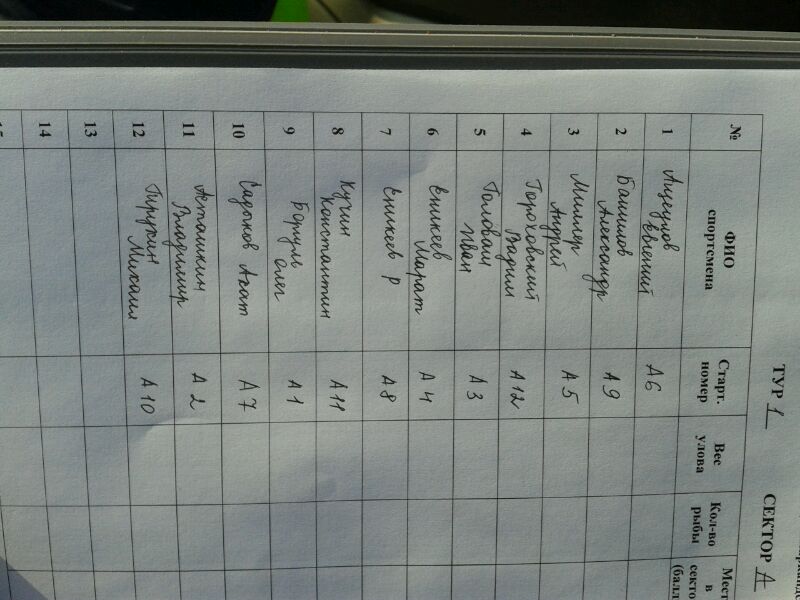 ТУР 1 СЕКТОР А
№ ФИО спортсмена Старт. номер Вес улова Кол-во рыбы Мест в секто (балл
1 Евгений А6
2 Башилов Александр А9
3 Миллер Андрей А5
4 Гороховский Вадим А12
5 Головаш Иван А3
6 Еникеев Марат А4
7 Еникеев Р А8
8 Кучин Константин А11
9 Боргуль Олег А1
10 Садыков Ахат А7
11 Асташкин Владимир А2
12 Михаил А10
13
14
15